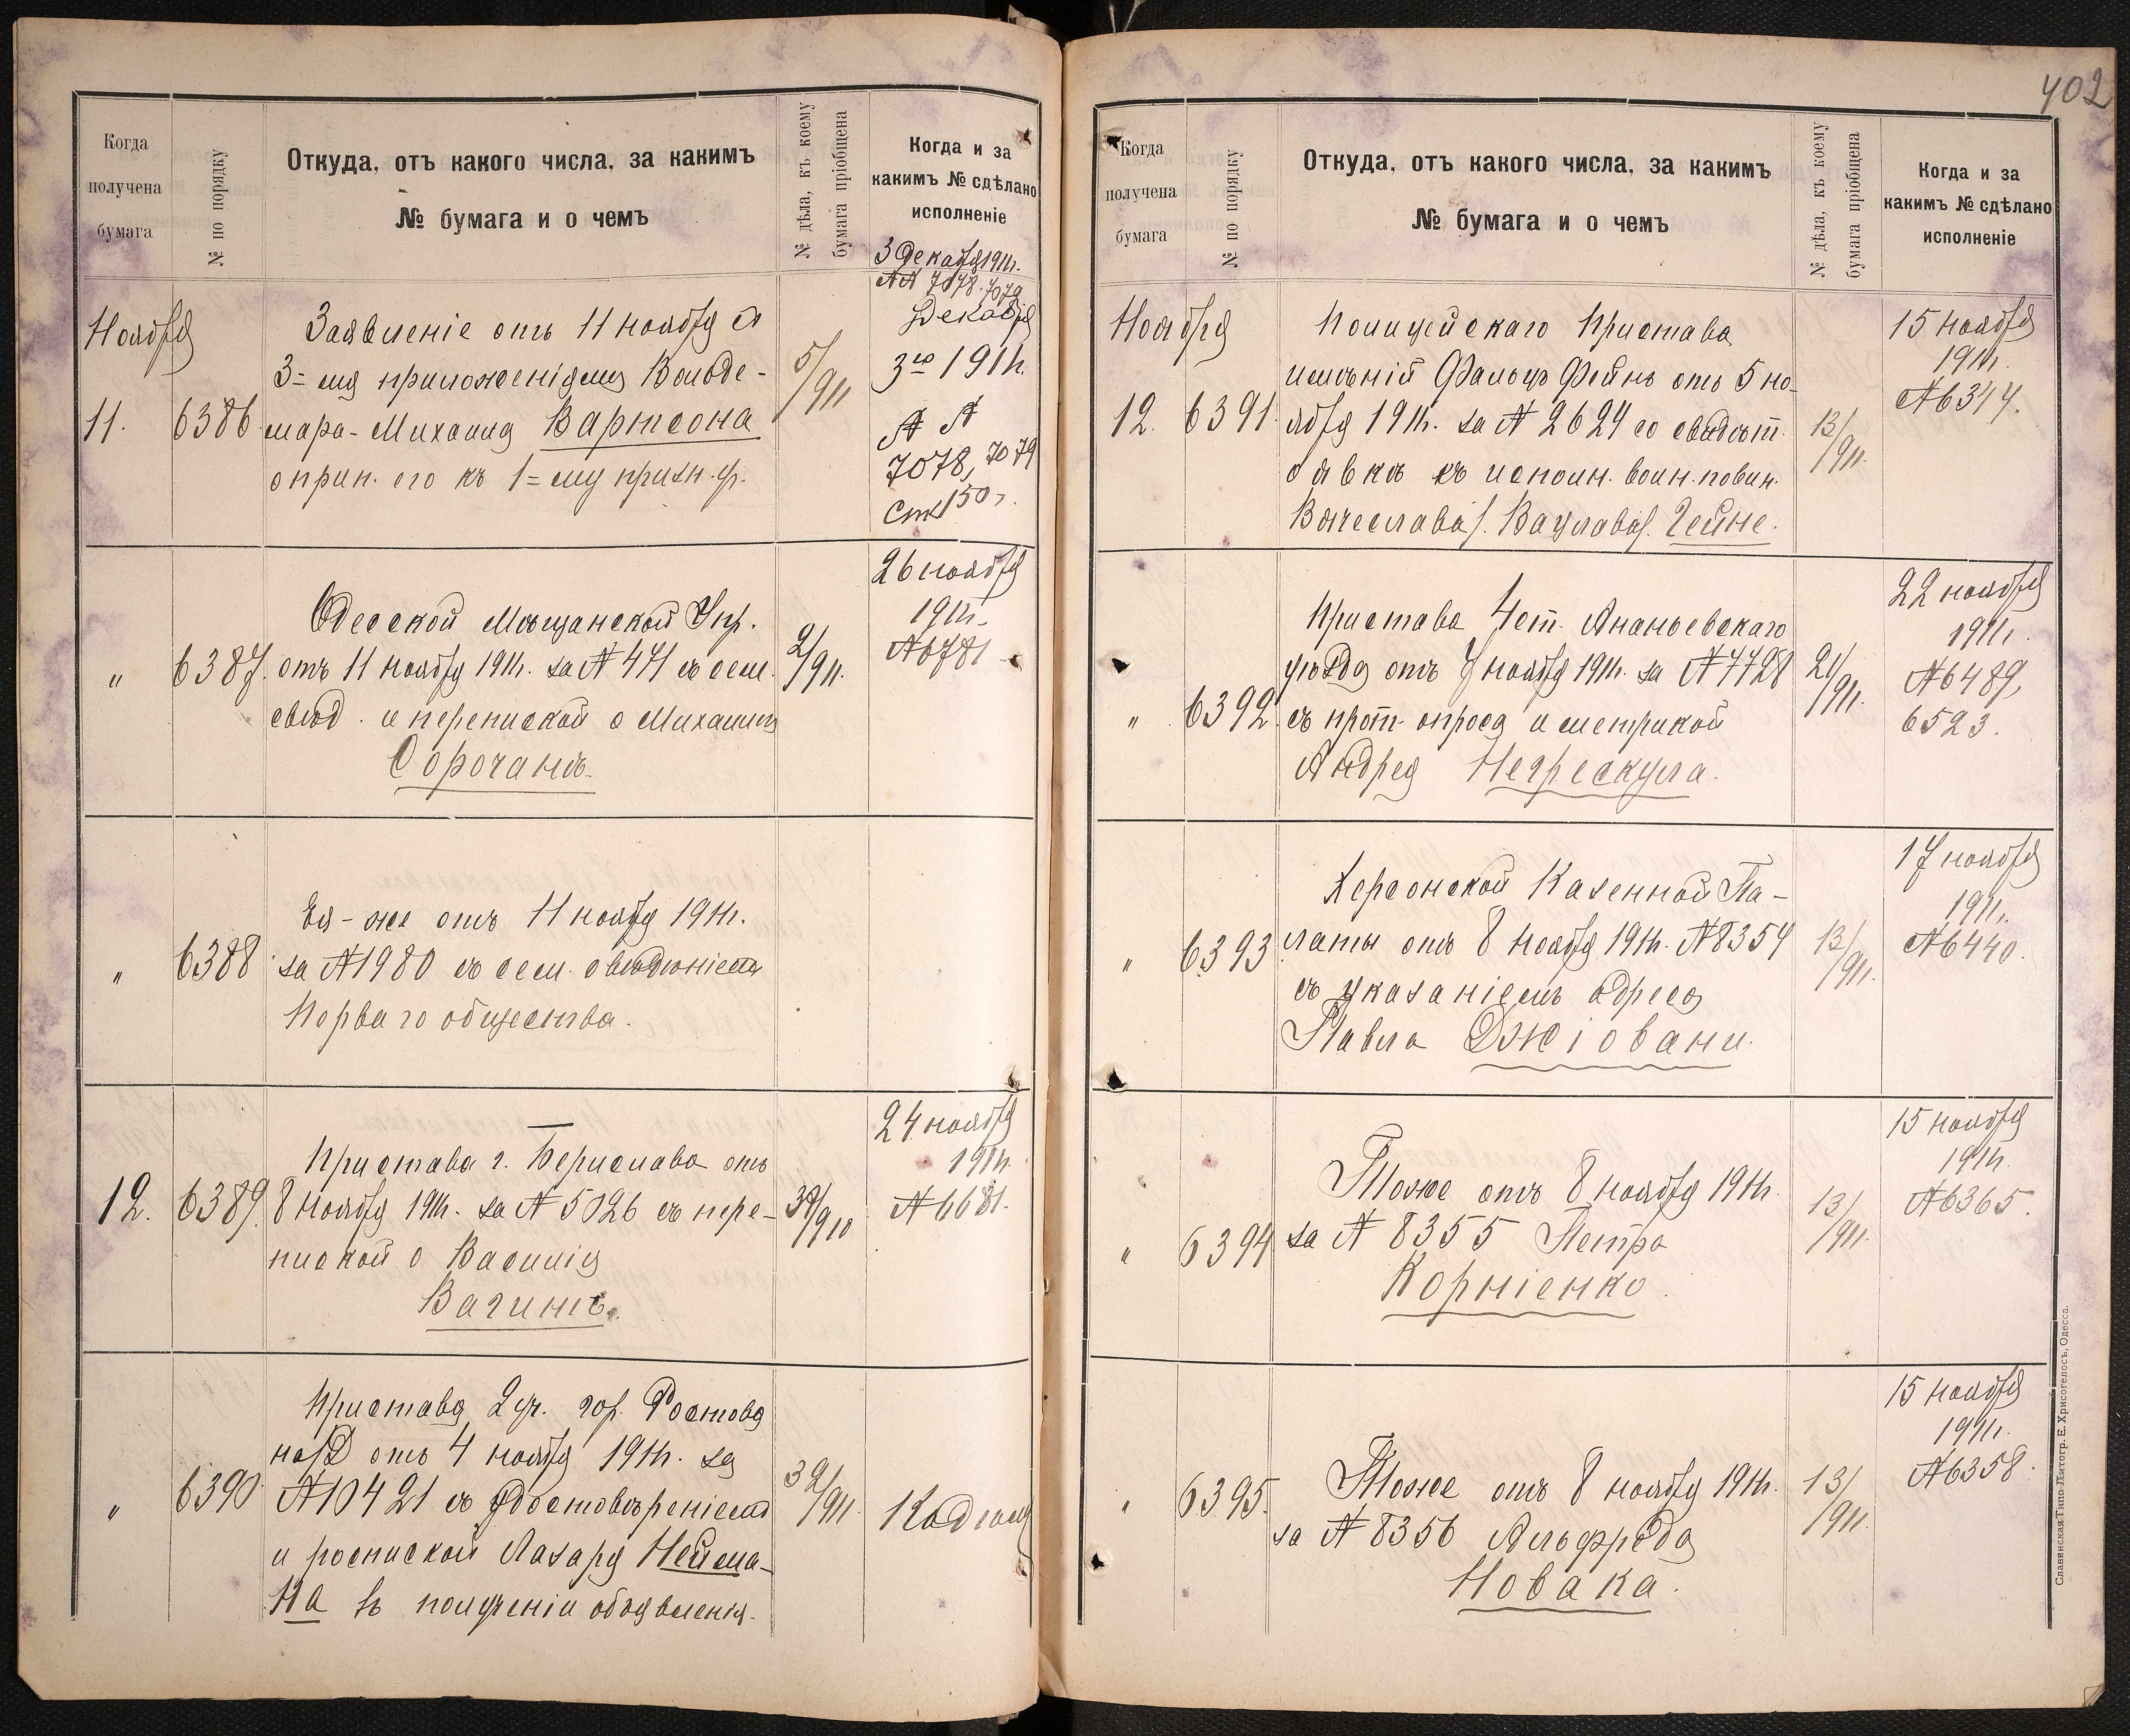 402
Когда
получена
бумага
№ по порядку
Откуда, отъ какого числа, за какимъ
№ бумага и о чемъ
№ дѣла, къ коему
бумага пріобщена
Когда и за
какимъ № сдѣлано
исполненіе
3 Декабря 1911г.
№№ 7078. 7079
Ноября
11.
6386.
Заявленіе отъ 11 ноября съ
3=мя приложеніями Вольде-
мара-Михаила Вартсона
о прип. его къ 1=му призн. ф.
5/911
Декабря
3го 1911г.
№ №
7078, 7079
"
6387.
Одесской Мѣщанской Упр.
отъ 11 ноября 1911г. за № 471 съ сем.
свѣд. и перепиской о Михаилѣ
Сорочанъ.
2/911.
26 ноября
1911г.
№6781
"
6388
Ея-же отъ 11 ноября 1911г.
за №1980 съ сем. свѣдѣніемъ
Перваго общества.
12.
6389.
Пристава г. Берислава отъ
8 ноября 1911г. за № 5026 съ пере-
пиской о Василіѣ
Вагинъ.
39/910
24 ноября
1911г.
№6681.
"
6390
Пристава 2 уч. гор. Ростова
на/Д отъ 4 ноября 1911г. за
№10421 съ удостовѣреніемъ
и роспиской Лазаря Нейма-
на въ полученіи объявленія.
32/911
Къ дѣлу
Когда
получена
бумага
№ по порядку
Откуда, отъ какого числа, за какимъ
№ бумага и о чемъ
№ дѣла, къ коему
бумага пріобщена
Когда и за
какимъ № сдѣлано
исполненіе
Ноября
12.
6391.
Полицейскаго Пристава
имѣній Фальцъ Фейнъ отъ 5 но-
ября 1911г. за № 2624 со свидѣт.
о явкѣ къ исполн. воин. повин.
Вячеслава/. Вацлава/. Гейне.
13/911.
15 ноября
1911г.
№6344.
"
6392
Пристава 4 ст. Ананьевскаго
уѣзда отъ 7 ноября 1911г. за №7728
съ прот. опроса и метрикой
Андрея Негрескула.
21/911.
22 ноября
1911г.
№6489,
6523.
"
6393
Херсонской Казенной Па-
латы отъ 8 ноября 1911г. №8354
съ указаніемъ адреса
Павла Джіовани.
13/911.
17 ноября
1911г.
№6440.
"
6394
Тоже отъ 8 ноября 1911г.
за № 8355 Петра
Корніенко.
13/911.
15 ноября
1911г.
№6365.
"
6395.
Тоже отъ 8 ноября 1911г.
за № 8356 Альфреда
Новака.
13/911.
15 ноября
1911г.
№6358.
Славянская Типо-Литогр. Е. Хрисогелосъ, Одесса.